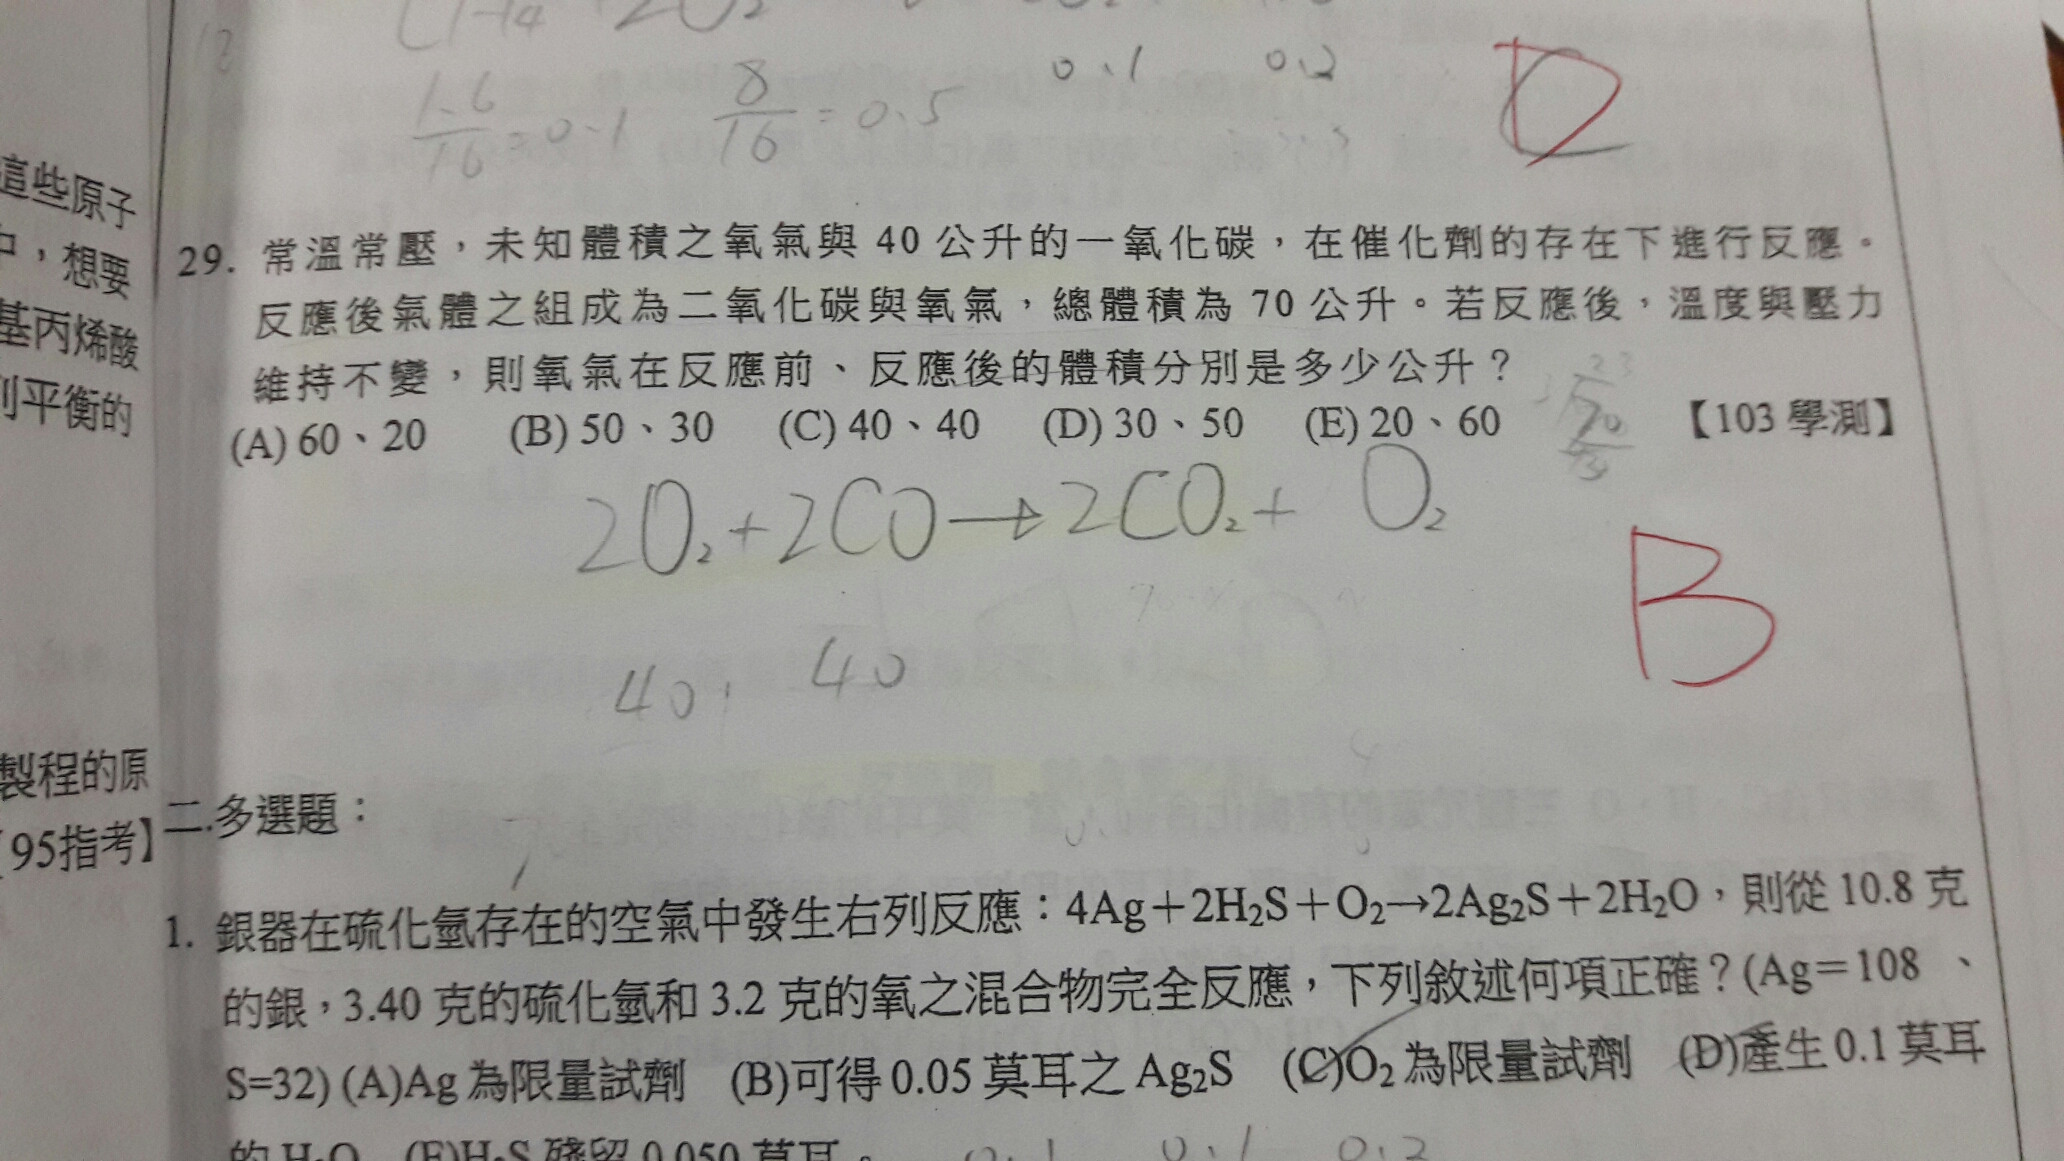 12
CH4 + 2O2
0.1 0.2
1.6/16=0.1 8/16=0.5
D
這些原子
中，想要
基丙烯酸
平衡的
製程的原
【95指考】
29. 常溫常壓，未知體積之氧氣與 40 公升的一氧化碳，在催化劑的存在下進行反應。
反應後氣體之組成為二氧化碳與氧氣，總體積為 70 公升。若反應後，溫度與壓力
維持不變，則氧氣在反應前、反應後的體積分別是多少公升？
(A) 60、20 (B) 50、30 (C) 40、40 (D) 30、50 (E) 20、60 【103 學測】
2O₂+2CO→2CO₂+ O₂
40 40
B
二.多選題：
1. 銀器在硫化氫存在的空氣中發生右列反應：4Ag＋2H₂S＋O₂→2Ag₂S＋2H₂O，則從 10.8 克
的銀，3.40 克的硫化氫和 3.2 克的氧之混合物完全反應，下列敘述何項正確？(Ag＝108 、
S=32) (A)Ag 為限量試劑 (B)可得 0.05 莫耳之 Ag₂S (C)O₂ 為限量試劑 (D)產生 0.1 莫耳
的 H₂O (E)H₂S 殘留 0.050 莫耳。